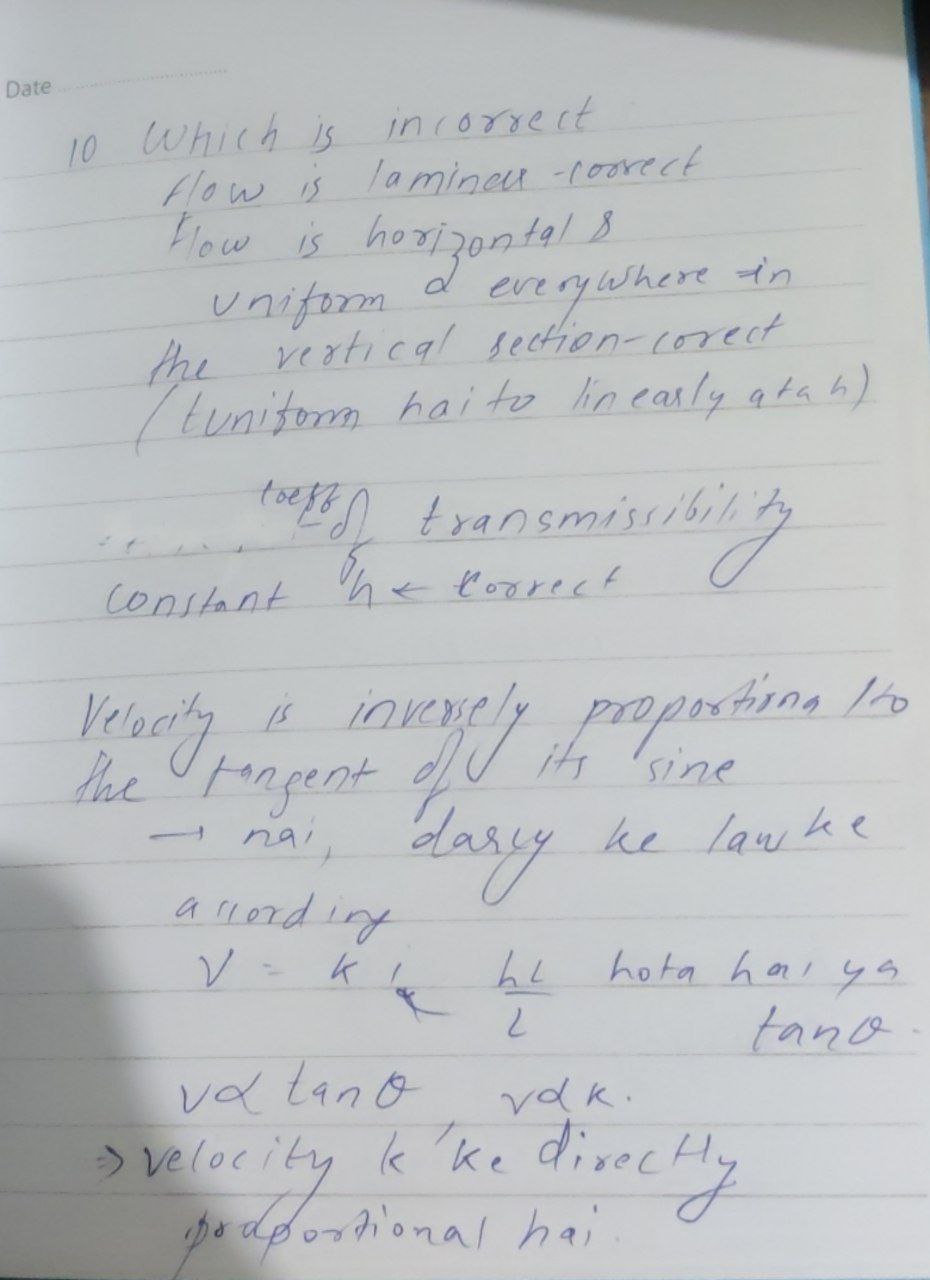 Date
10 Which is incorrect
flow is laminar - correct
Flow is horizontal &
uniform everywhere in
the vertical section - corect
(uniform hai to linearly
coeff of transmissibility
constant h ← correct
Velocity is inversely proportiona l to
the tangent of its sine
→ nai, darcy ke law ke
according
V = k i hL hota hai ya
L tanθ.
v∝ tanθ v∝k.
⇒ velocity k' ke directly
proportional hai.